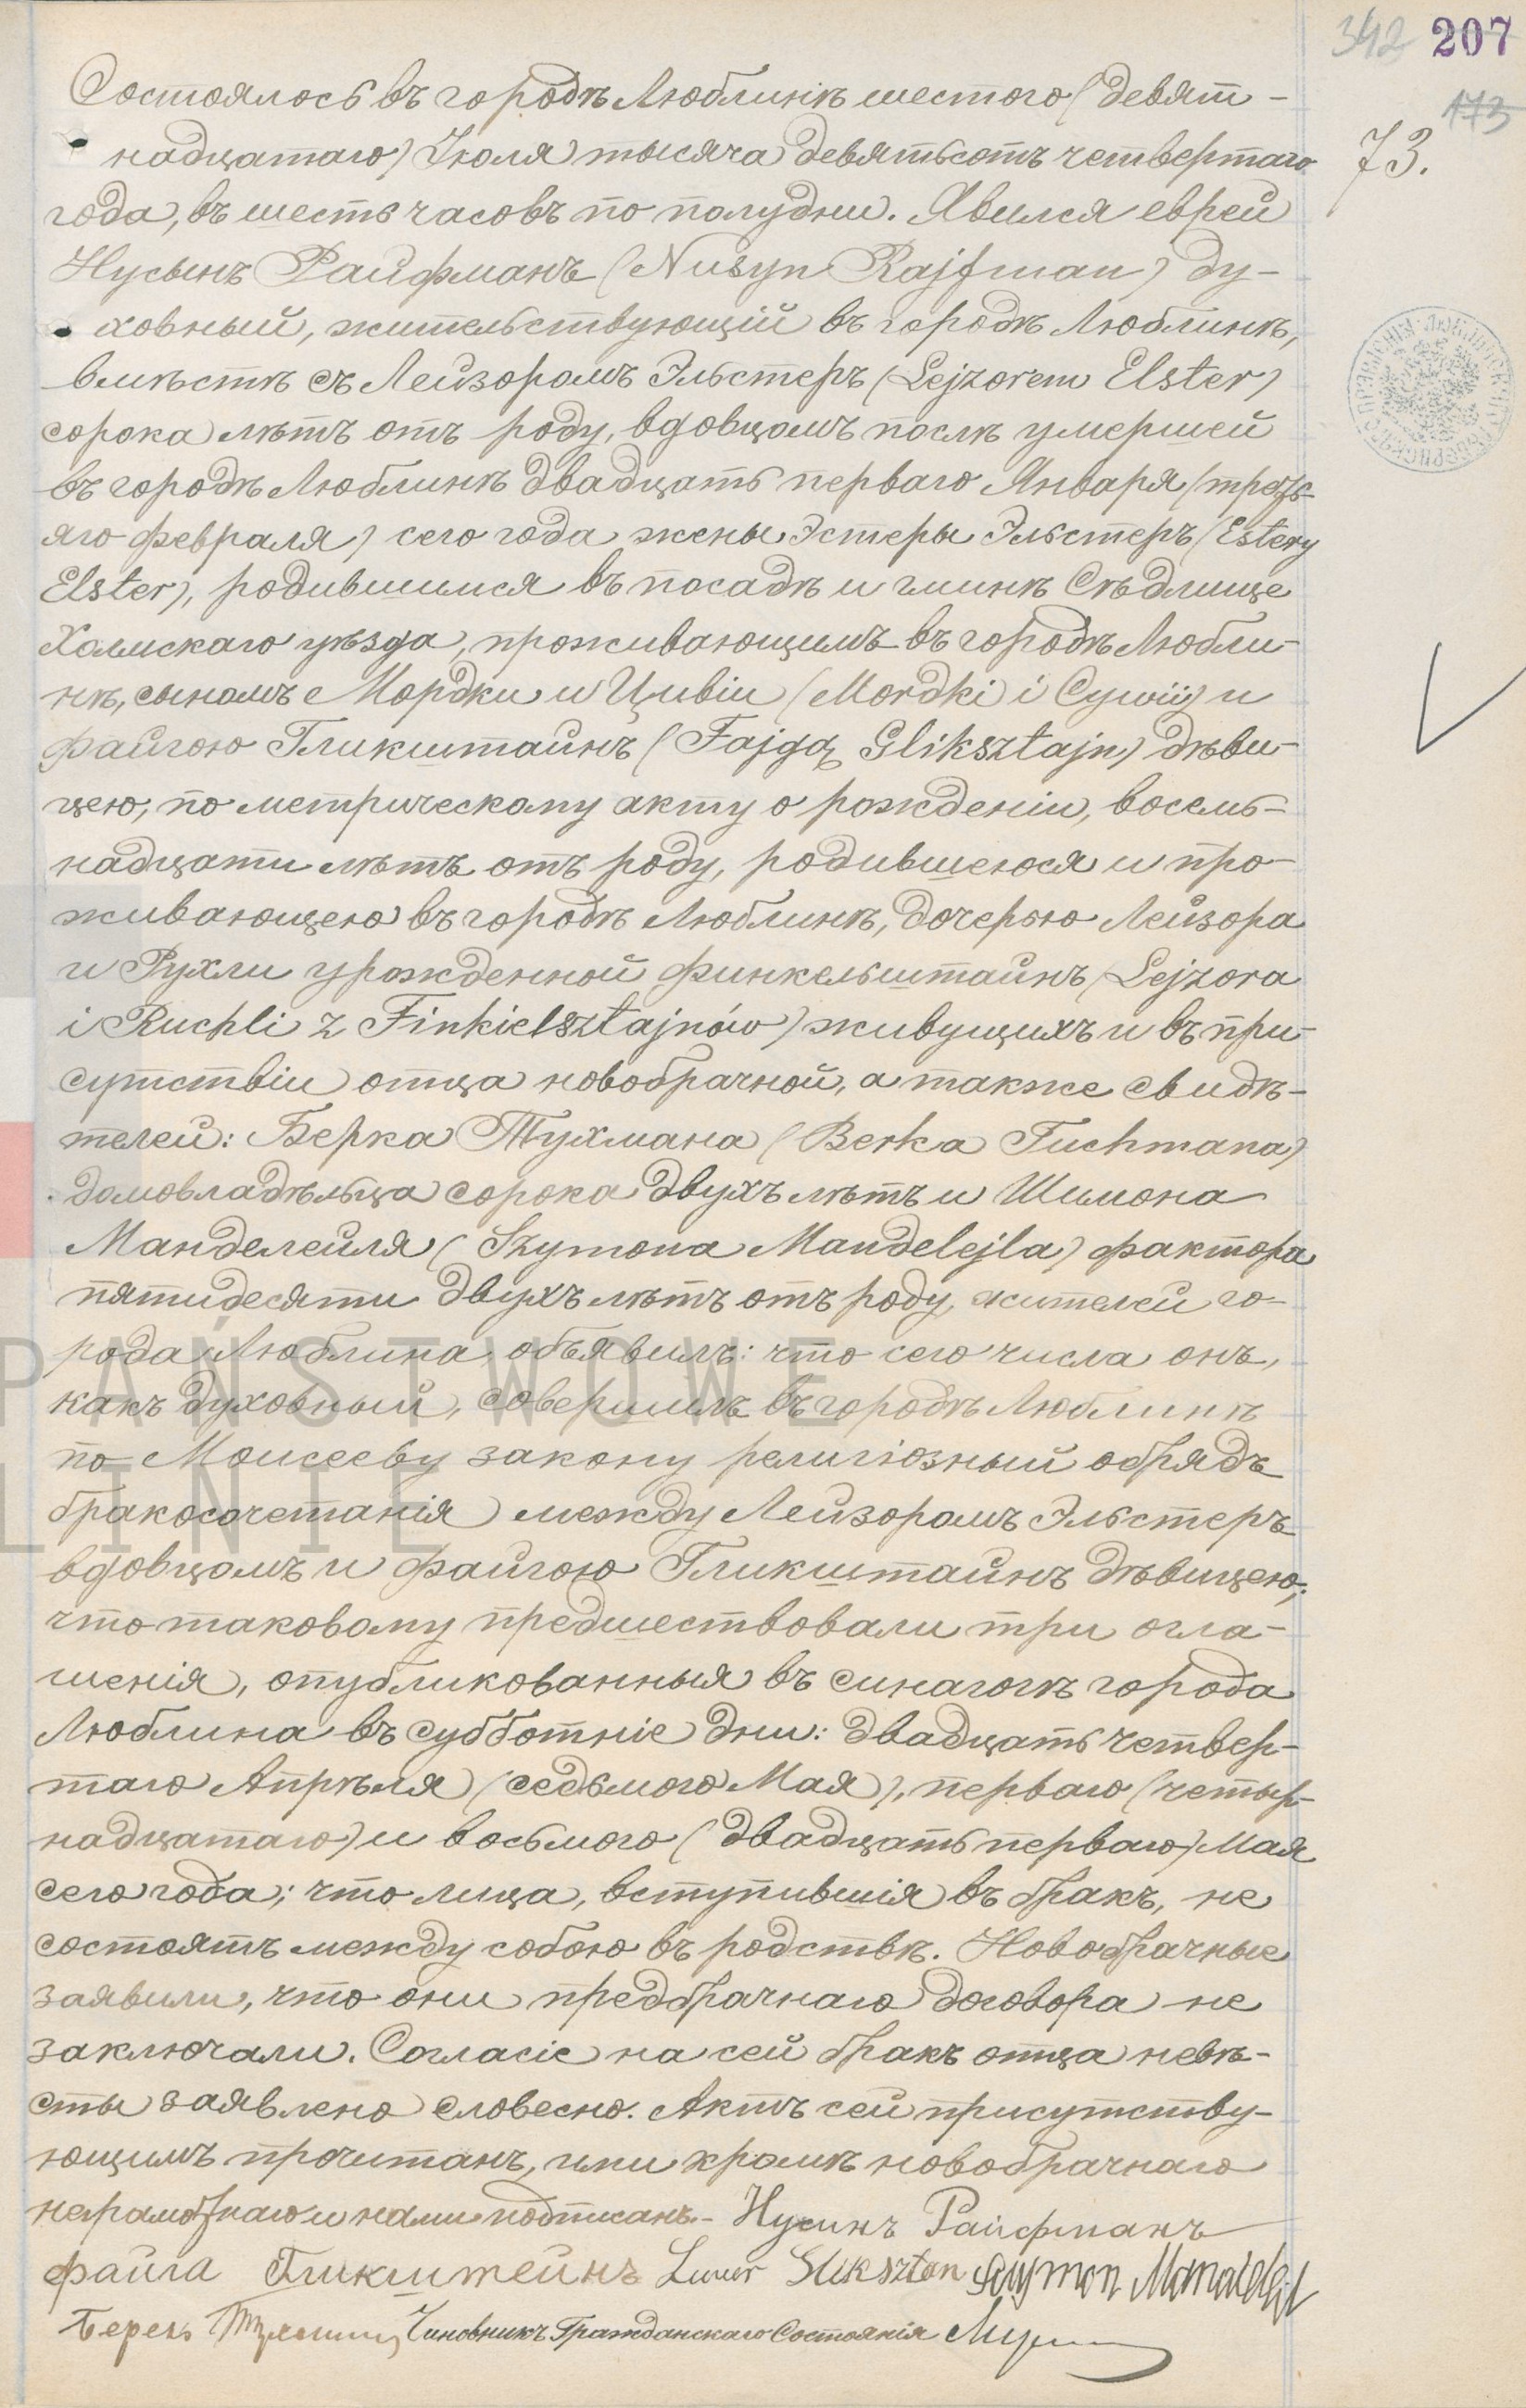 342 207
173
73.
Состоялось въ городѣ Люблинѣ шестого (девят-
надцатаго) Іюля тысяча девятьсотъ четвертаго
года, въ шесть часовъ по полудни. Явился еврей
Нусынъ Райфманъ (Nusyn Rajfman) ду-
ховный, жительствующій въ городѣ Люблинѣ,
вмѣстѣ съ Лейзоромъ Эльстеръ (Lejzorem Elster)
сорока лѣтъ отъ роду, вдовцомъ послѣ умершей
въ городѣ Люблинѣ двадцать перваго Января (треть-
яго февраля) сего года жены Эстеры Эльстеръ (Estery
Elster), родившимся въ посадѣ и гминѣ Сѣдлище
Холмскаго уѣзда, проживающимъ въ городѣ Любли-
нѣ, сыномъ Мордки и Цивіи (Mordki i Cywii) и
Файгою Гликштайнъ (Fajgą Gliksztajn) дѣви-
цею, по метрическому акту о рожденіи, восемь-
надцати лѣтъ отъ роду, родившеюся и про-
живающею въ городѣ Люблинѣ, дочерью Лейзора
и Рухли урожденной Финкельштайнъ (Lejzora
i Ruchli z Finkielsztajnów) живущихъ и въ при-
сутствіи отца новобрачной, а также свидѣ-
телей: Берка Тухмана (Berka Tuchmana)
домовладѣльца сорока двухъ лѣтъ и Шимона
Манделейля (Szymona Mandelejla) фактора
пятидесяти двухъ лѣтъ отъ роду, жителей го-
рода Люблина, объявилъ: что сего числа онъ,
какъ духовный, совершилъ въ городѣ Люблинѣ
по Моисееву закону религіозный обрядъ
бракосочетанія между Лейзоромъ Эльстеръ
вдовцомъ и Файгою Гликштайнъ дѣвицею;
что таковому предшествовали три огла-
шенія, опубликованныя въ синагогѣ города
Люблина въ субботніе дни: двадцать четвер-
таго Апрѣля (седьмого Мая), перваго (четыр-
надцатаго) и восьмого (двадцать перваго) Мая
сего года; что лица, вступившія въ бракъ, не
состоятъ между собою въ родствѣ. Новобрачные
заявили, что они предбрачнаго договора не
заключали. Согласіе на сей бракъ отца невѣ-
сты заявлено словесно. Актъ сей присутству-
ющимъ прочитанъ, ими кромѣ новобрачнаго
неграмотнаго и нами подписанъ.- Нусинъ Райфманъ
Файга Гликштейнъ Szymon Mandelejl
Берекъ Чиновникъ Гражданскаго Состоянія
PAŃSTWOWE
LINIE